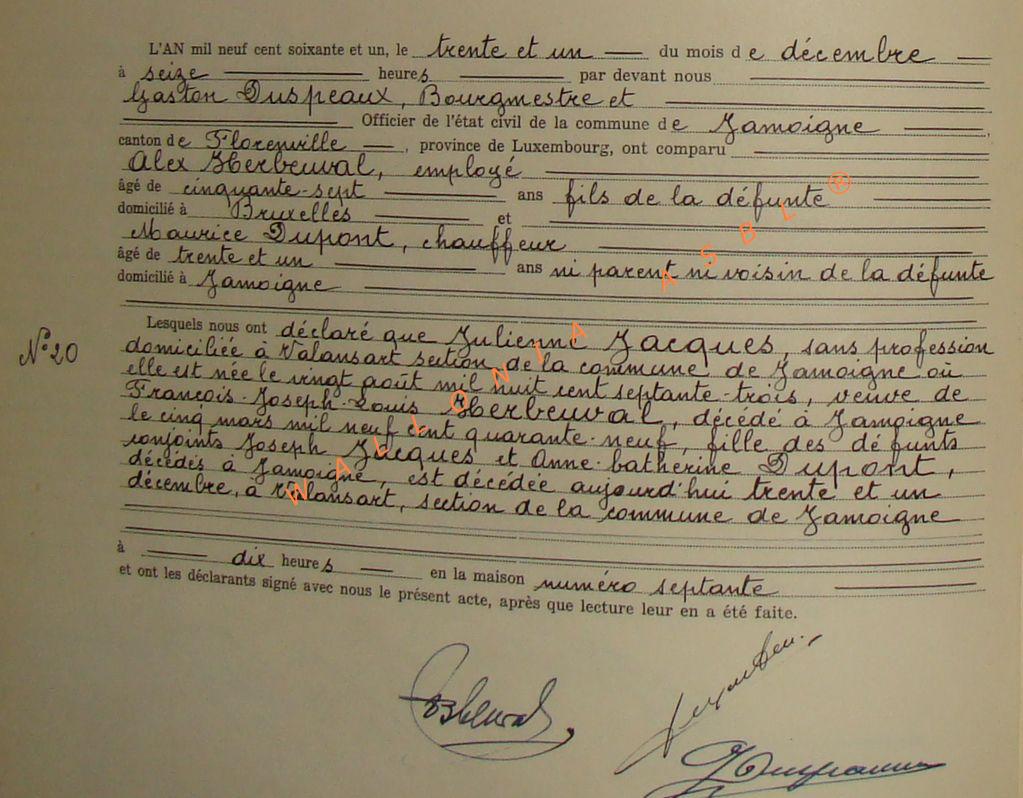 L'AN mil neuf cent soixante et un, le trente et un du mois de décembre
à seize heures par devant nous
Gaston Duspeaux, Bourgmestre et
Officier de l'état civil de la commune de Jamoigne,
canton de Florenville, province de Luxembourg, ont comparu
Alex Herbeuval, employé
âgé de cinquante-sept ans fils de la défunte
domicilié à Bruxelles et
Maurice Dupont, chauffeur
âgé de trente et un ans ni parent ni voisin de la défunte
domicilié à Jamoigne
Lesquels nous ont déclaré que Julienne Jacques, sans profession
N° 20
domiciliée à Valansart section de la commune de Jamoigne où
elle est née le vingt août mil huit cent septante-trois, veuve de
François-Joseph-Louis Herbeuval, décédé à Jamoigne
le cinq mars mil neuf cent quarante-neuf, fille des défunts
conjoints Joseph Jacques et Anne-Catherine Dupont,
décédés à Jamoigne, est décédée aujourd'hui trente et un
décembre, à Valansart, section de la commune de Jamoigne
à dix heures en la maison numéro septante
et ont les déclarants signé avec nous le présent acte, après que lecture leur en a été faite.
WALLONIA ASBL ®